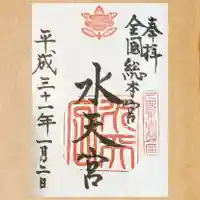 奉拝
全國総本宮
水天宮
平成三十一年一月二日